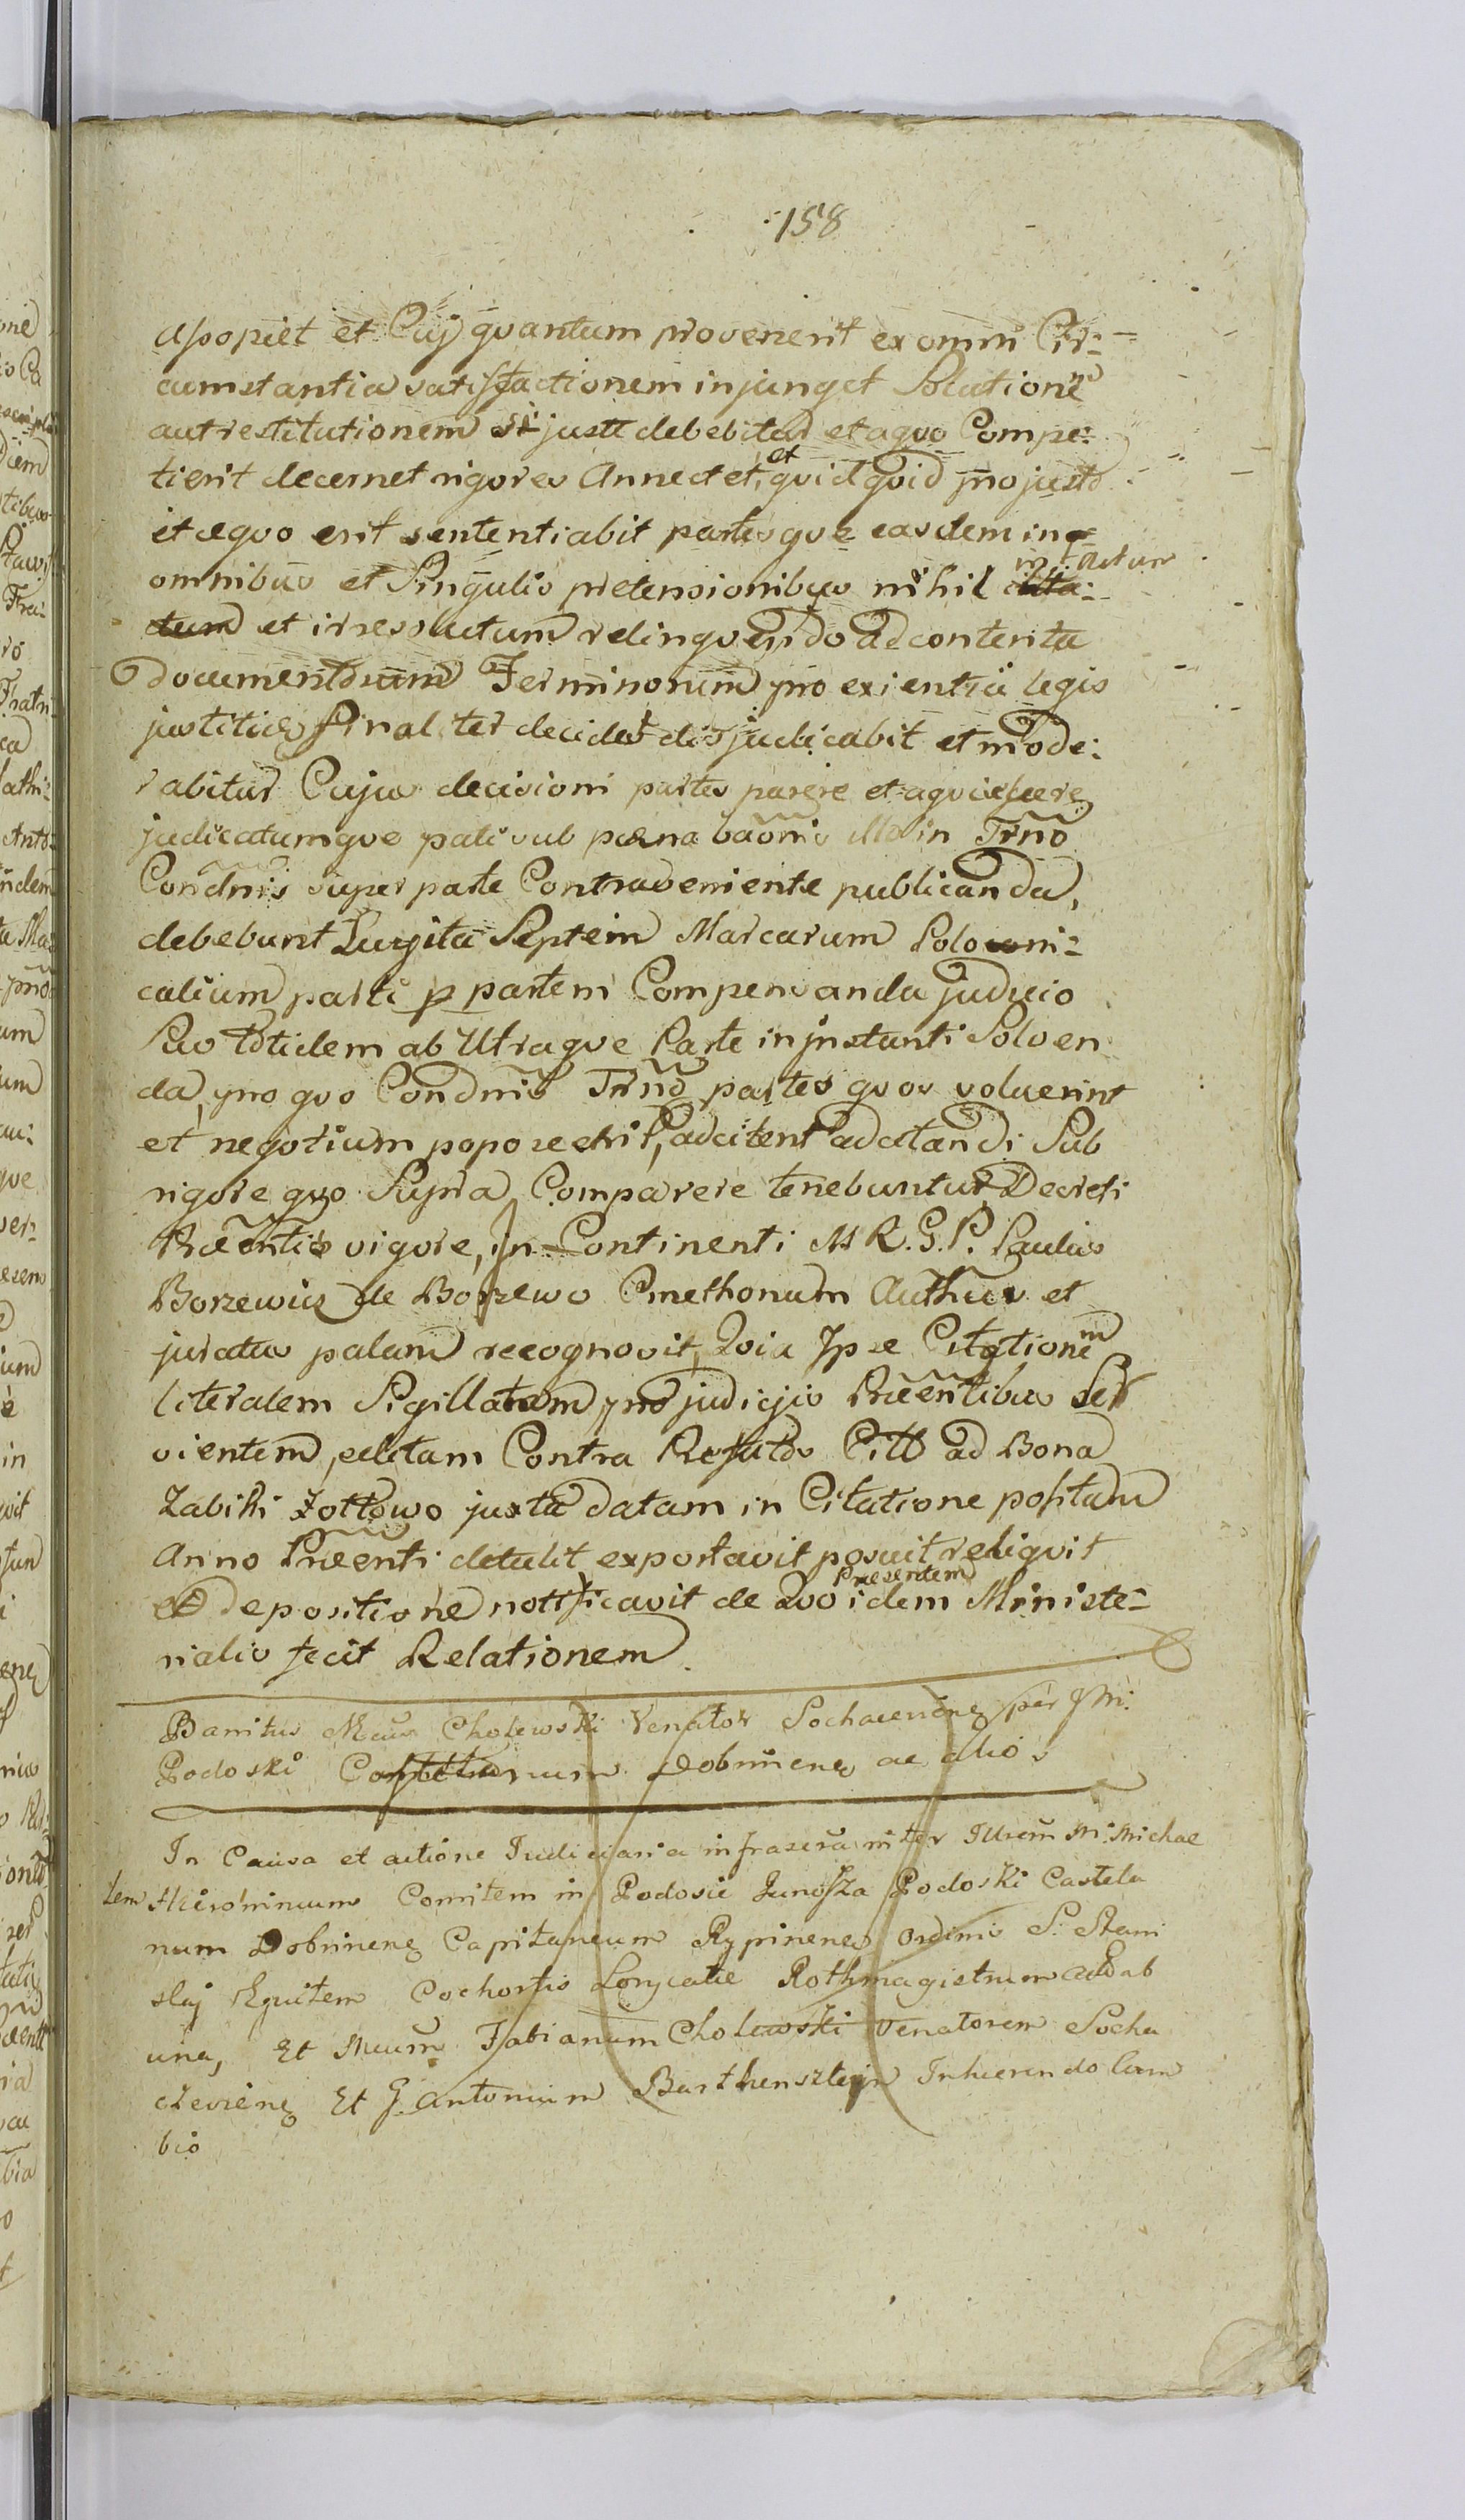 158
et Cuj quantum provenerit ex omni Cir:
cumstantia satisfactionem injunget Solutione
aut restitutionem si juste debebitur et aquo Compe:
tierit decernet rigores Annectet, et quidquid pro justo
et æquo erit sententiabit partesque easdem in
omnibus et Singulis pretensionibus nihil
tum et irresolutum relinquendo ad contenta
Documentorum Terminorum pro exientia legis
justitiæ finaliter decidet dijudicabit et mode:
rabitur Cujus decisioni partes parere et
judicatumque pati sub pæna bãonis illo in Trño
Condñis super parte Contraveniente publicanda,
debebunt Luyita Septem Marcarum Poloni:
calium parti p partem Compensanda judicio
Suo totidem ab Utraque Parte in jnstanti Solven
da, pro quo Condñis Trño partes quos voluerint
et negotium poposcerit, adcitent adcitandi Sub
rigore quo Supra Comparere tenebuntur Decreti
Præntis vigore, In Continenti M R. G. P. Paulus
Borzewicz de Borzewo Cmethonum Author et
juratus palam recognovit, Quia Ipse Citationem
literalem Sigillatam pro judicijs Præentibus Ser
vientem, editam Contra Citt ad Bona
Zabiki Zottowo juxta datam in Citatione positam
Anno Præenti detulit exportavit posuit reliquit
et Depositione notificavit de Quo idem Præsentem Ministe:
rialis fecit Relationem.
Banitus Mcus Cholewski Venator Sochacenens per JM:
Podoski Castellanum Dobrinens ac alios
In Causa et actione Judiciaria infrascra inter Illrem M: Michae
lem Hieroninum Comitem in Podosie Junosza Podoski Castela
num Dobrinens Capitaneum Rypinens Ordinis S. Stani
slaj Equitem Cochortis Loricatæ Rothmagistrum Act ab
una, Et Mcum Fabianum Cholewski Venatorem Socha
czeviens Et G. Antonium Barthensztejn Inhærendo Cam
bio